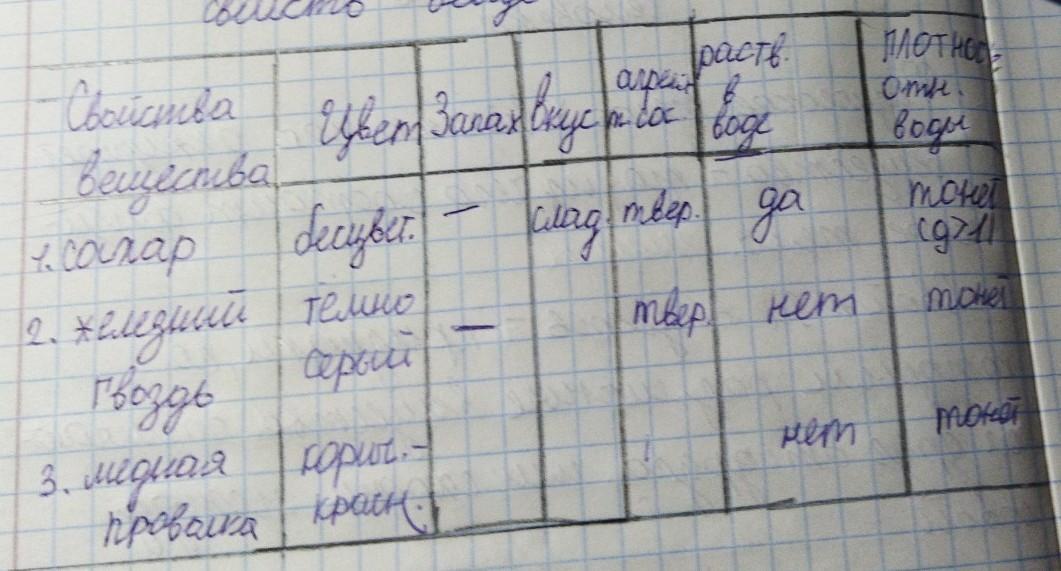 Свойства
вещества
Цвет
Запах
Вкус
агрег.
сос.
раств.
в
воде
плотнос
отн.
воды
1. сахар
бесцвет.
—
слад.
твер.
да
тонет
(d>1)
2. железный
гвоздь
темно
серый
—
твер.
нет
тонет
3. медная
проволка
корич.-
красн.
нет
тонет